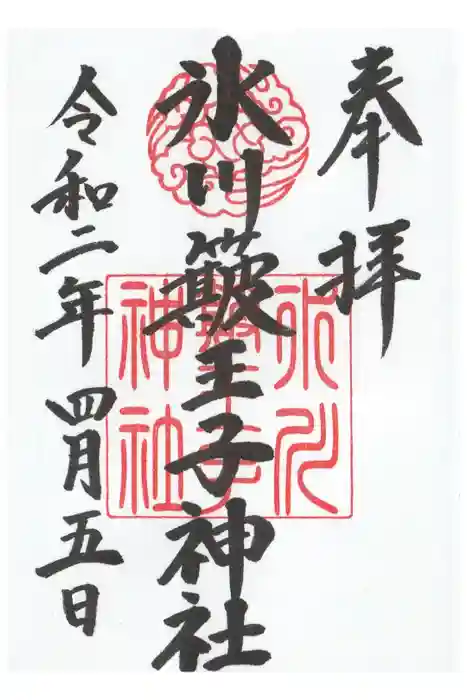 奉拝
氷川簸王子神社
令和二年四月五日
氷川
簸王子
神社